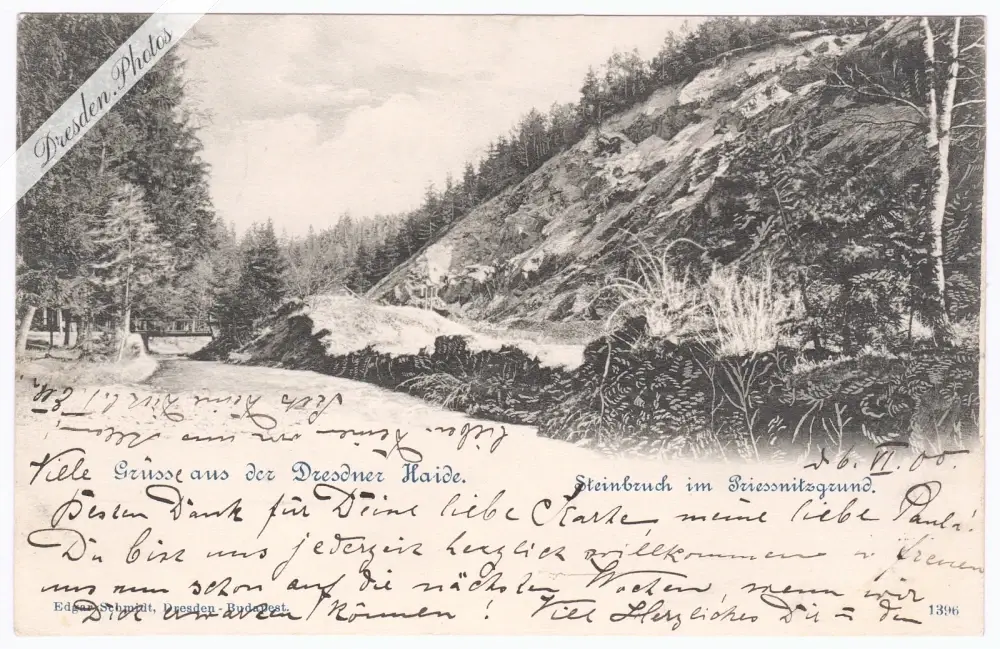 Dresden.Photos
Viele Grüsse aus der Dresdner Haide.
Steinbruch im Priessnitzgrund.
d. 6. VI. 00.
Besten Dank für Deine liebe Karte, meine liebe Paula!
Du bist uns jederzeit herzlich willkommen u. freuen
uns nun schon auf die nächsten Wochen, wenn wir
Dich erwarten können! Viel Herzliches Dir u. den
Edgar Schmidt, Dresden-Budapest.
1396